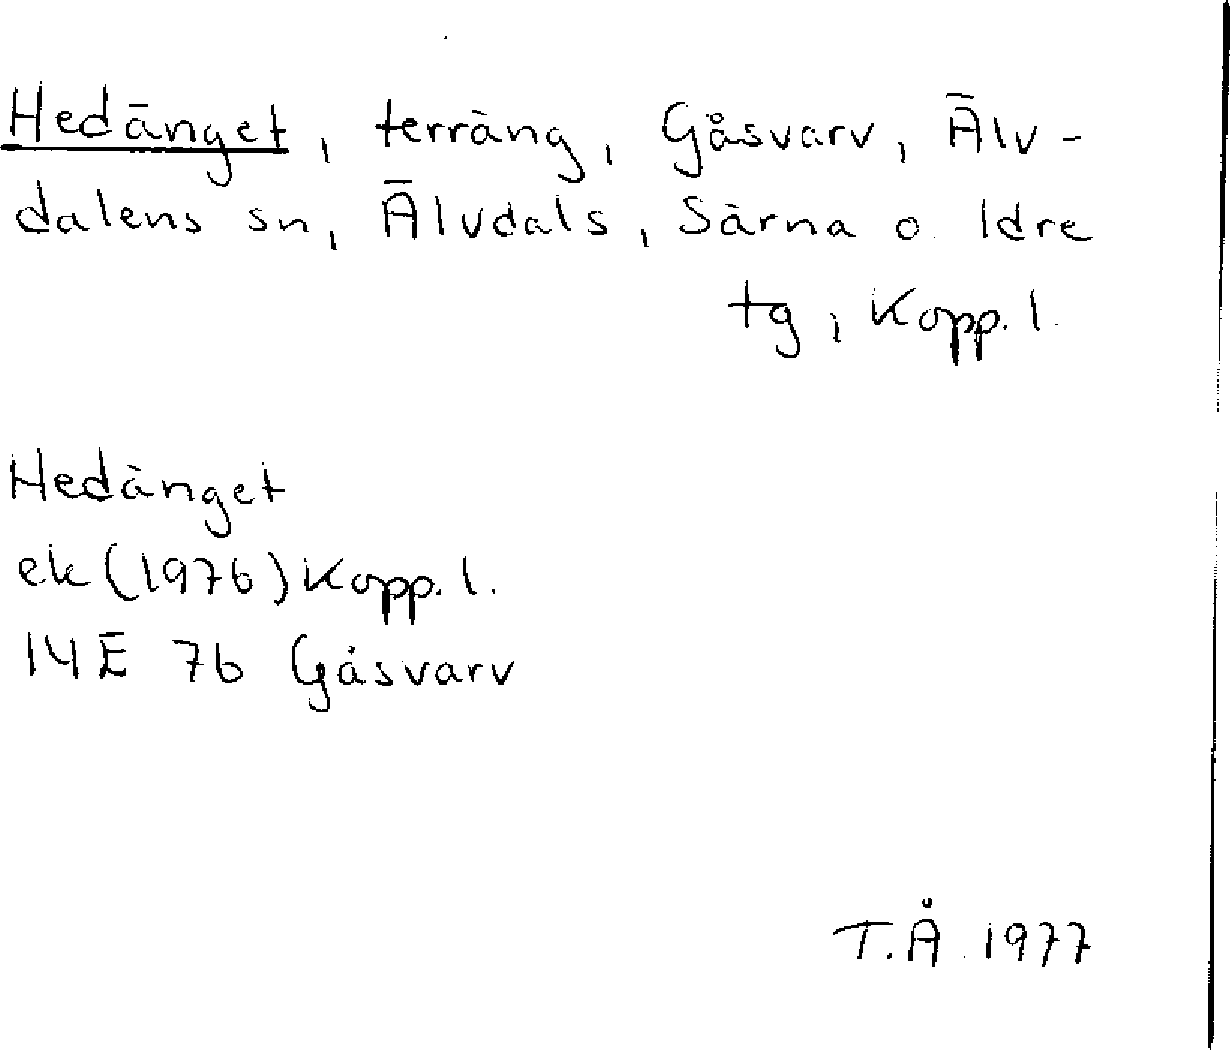 Hedänget, terräng, Gåsvarv, Älv-
dalens sn, Älvdals, Särna o. Idre
tg, Kopp. l.
Hedänget
ek (1976) Kopp. l.
14E 7b Gåsvarv
T.Å. 1977